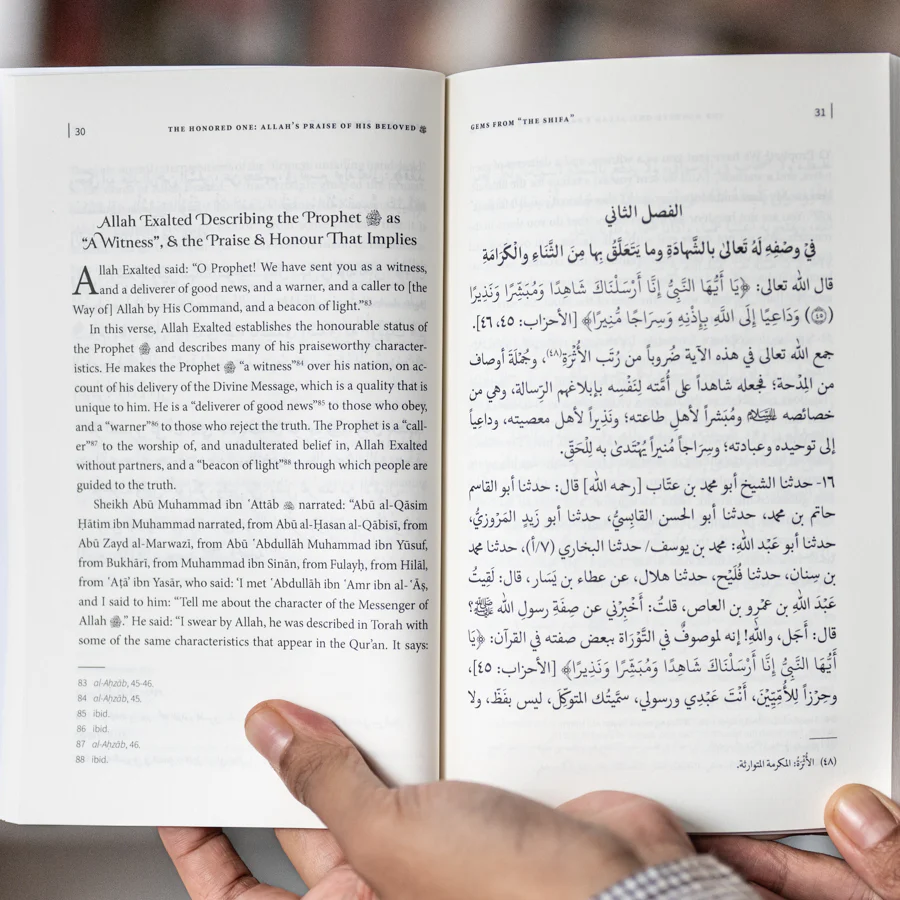 30
THE HONORED ONE: ALLAH'S PRAISE OF HIS BELOVED ﷺ
Allah Exalted Describing the Prophet ﷺ as
“A Witness”, & the Praise & Honour That Implies
Allah Exalted said: “O Prophet! We have sent you as a witness,
and a deliverer of good news, and a warner, and a caller to [the
Way of] Allah by His Command, and a beacon of light.”83
In this verse, Allah Exalted establishes the honourable status of
the Prophet ﷺ and describes many of his praiseworthy character-
istics. He makes the Prophet ﷺ “a witness”84 over his nation, on ac-
count of his delivery of the Divine Message, which is a quality that is
unique to him. He is a “deliverer of good news”85 to those who obey,
and a “warner”86 to those who reject the truth. The Prophet is a “call-
er”87 to the worship of, and unadulterated belief in, Allah Exalted
without partners, and a “beacon of light”88 through which people are
guided to the truth.
Sheikh Abū Muhammad ibn ʿAttāb narrated: “Abū al-Qāsim
Ḥātim ibn Muhammad narrated, from Abū al-Ḥasan al-Qābisī, from
Abū Zayd al-Marwazī, from Abū ʿAbdullāh Muhammad ibn Yūsuf,
from Bukhārī, from Muhammad ibn Sinān, from Fulayḥ, from Hilāl,
from ʿAṭāʾ ibn Yasār, who said: ‘I met ʿAbdullāh ibn ʿAmr ibn al-ʿĀṣ,
and I said to him: “Tell me about the character of the Messenger of
Allah ﷺ.” He said: “I swear by Allah, he was described in Torah with
some of the same characteristics that appear in the Qur’an. It says:
83 al-Aḥzāb, 45-46.
84 al-Aḥzāb, 45.
85 ibid.
86 ibid.
87 al-Aḥzāb, 46.
88 ibid.
GEMS FROM “THE SHIFA”
31
الفصل الثاني
في وصْفِهِ لَهُ تَعالىٰ بالشَّهادَةِ وما يَتَعَلَّقُ بِها مِنَ الثَّناءِ والْكَرامَةِ
قال الله تعالى: ﴿يَا أَيُّهَا النَّبِيُّ إِنَّا أَرْسَلْنَاكَ شَاهِدًا وَمُبَشِّرًا وَنَذِيرًا
(٤٥) وَدَاعِيًا إِلَى اللَّهِ بِإِذْنِهِ وَسِرَاجًا مُّنِيرًا﴾ [الأحزاب: ٤٥، ٤٦].
جمع الله تعالى في هذه الآية ضُروباً من رُتَب الأُثْرَةِ(٤٨)، وجُمْلَةَ أوصاف
من المِدْحة؛ فجعله شاهداً على أُمَّته لِنَفْسِه بإبلاغهم الرِّسالة، وهي من
خصائصه ﷺ ومُبَشراً لأهلِ طاعته؛ ونَذِيراً لأهل معصيته، وداعياً
إلى توحيده وعبادته؛ وسِرَاجاً مُنيراً يُهْتدىٰ به لِلْحَقِّ.
١٦- حدثنا الشيخ أبو محمد بن عتَّاب [رحمه الله] قال: حدثنا أبو القاسم
حاتم بن محمد، حدثنا أبو الحسن القابِسيُّ، حدثنا أبو زَيدٍ المَرْوَزيُّ،
حدثنا أبو عَبْد اللهِ: محمد بن يوسف/ حدثنا البخاري (٧/أ)، حدثنا محمد
بن سِنان، حدثنا فُلَيْح، حدثنا هلال، عن عطاء بن يَسَار، قال: لَقِيتُ
عَبْدَ اللهِ بن عَمْرِو بن العاص، قلتُ: أَخْبِرْني عن صفَةِ رسولِ الله ﷺ؟
قال: أَجَل، واللهِ! إنه لموصوفٌ في التَّوْرَاة ببعض صفته في القرآن: ﴿يَا
أَيُّهَا النَّبِيُّ إِنَّا أَرْسَلْنَاكَ شَاهِدًا وَمُبَشِّرًا وَنَذِيرًا﴾ [الأحزاب: ٤٥]،
وحِرْزاً لِلْأُمِّيِّيْنَ، أَنْتَ عَبْدِي ورسولي، سمَّيتُك المتوكِّلَ، ليس بفَظّ، ولا
(٤٨) الأُثْرَةُ: المكرمة المتوارثة.